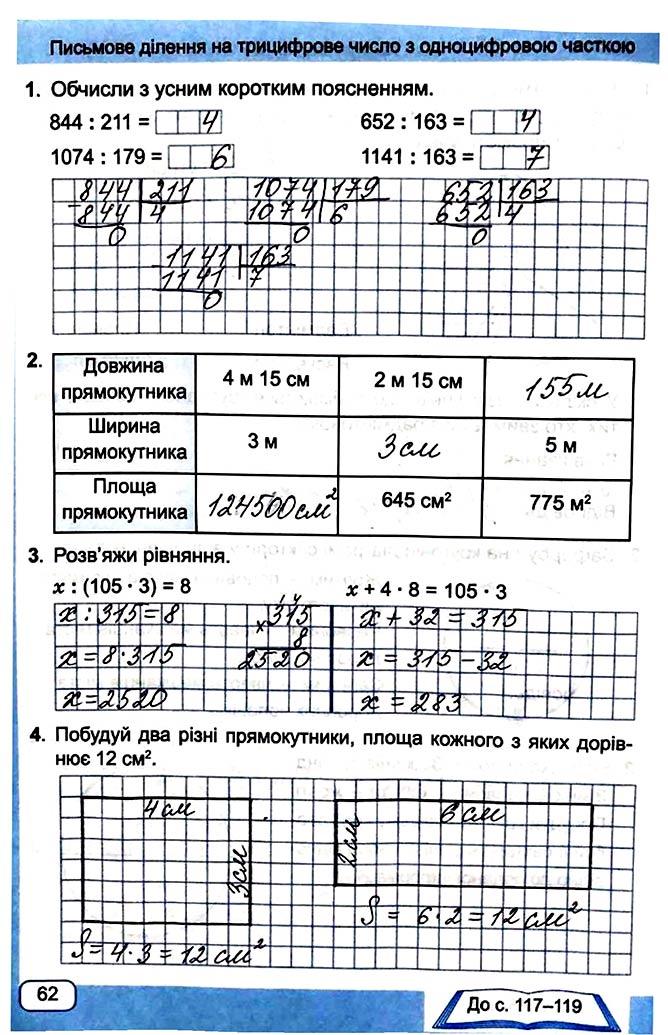 Письмове ділення на трицифрове число з одноцифровою часткою
1. Обчисли з усним коротким поясненням.
844 : 211 = 4 652 : 163 = 4
1074 : 179 = 6 1141 : 163 = 7
844 211 1074 179 652 163
844 4 1074 6 652 4
0 0 0
1141 163
1141 7
0
2. Довжина прямокутника 4 м 15 см 2 м 15 см 155 м
Ширина прямокутника 3 м 3 см 5 м
Площа прямокутника 124500 см² 645 см² 775 м²
3. Розв'яжи рівняння.
x : (105 · 3) = 8 x + 4 · 8 = 105 · 3
x : 315 = 8 × 315 x + 32 = 315
8
x = 8 · 315 2520 x = 315 – 32
x = 2520 x = 283
4. Побудуй два різні прямокутники, площа кожного з яких дорів-
нює 12 см².
4 см 6 см
3 см 2 см
S = 6 · 2 = 12 см²
S = 4 · 3 = 12 см²
62
До с. 117–119